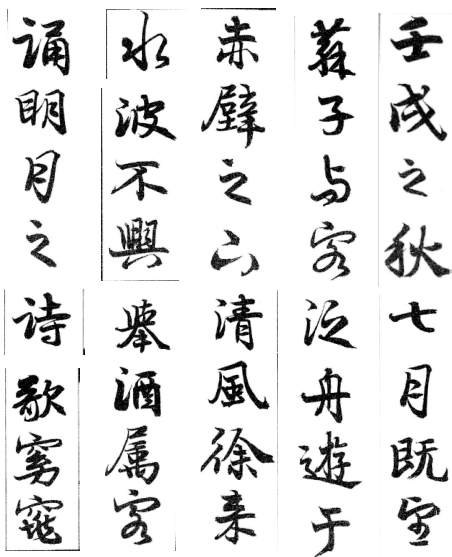 壬戌之秋七月既望
蘓子与客泛舟遊于
赤壁之下清風徐来
水波不興舉酒属客
誦明月之詩歌窈窕